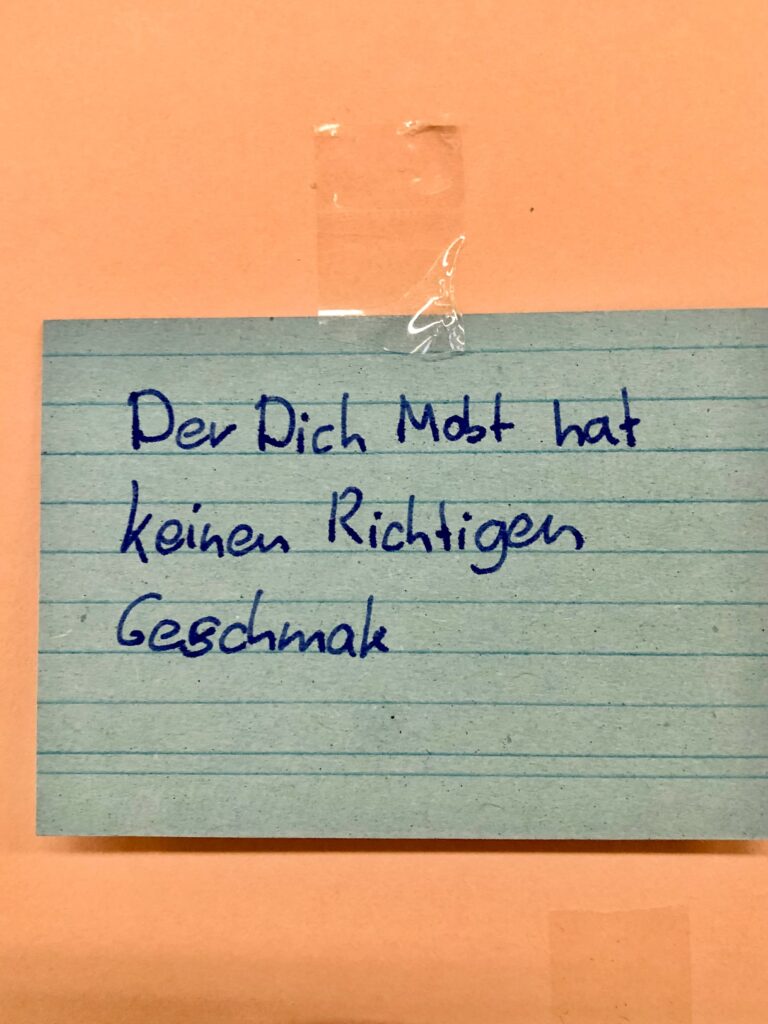 Der Dich Mobt hat
keinen Richtigen
Geschmak